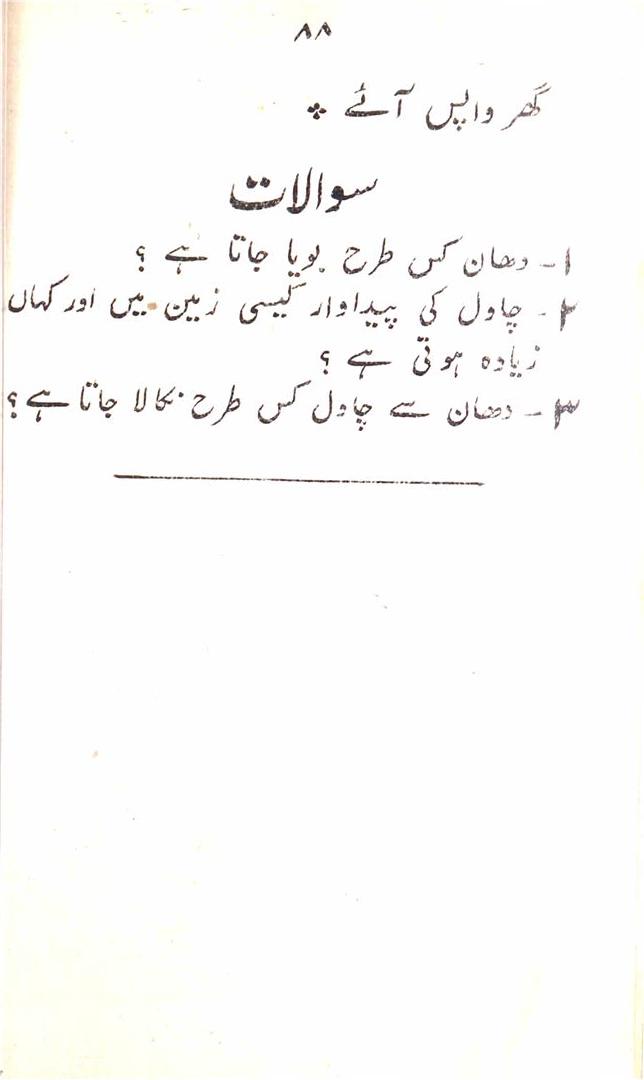 ۸۸
گھر واپس آئے ❖
سوالات
۱۔ دھان کس طرح بویا جاتا ہے ؟
۲۔ چاول کی پیداوار کیسی زمین میں اور کہاں
زیادہ ہوتی ہے ؟
۳۔ دھان سے چاول کس طرح نکالا جاتا ہے ؟